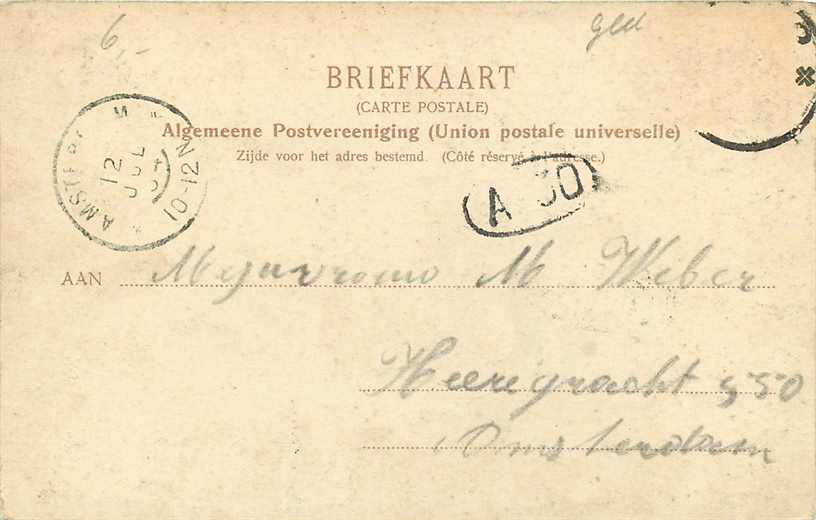 6,-
Gld
BRIEFKAART
(CARTE POSTALE)
Algemeene Postvereeniging (Union postale universelle)
Zijde voor het adres bestemd. (Côté réservé à l'adresse.)
AMSTERD M
12 JUL 04
10-12 N
A 30
AAN Mejuvrouw M Weber
Heeregracht 550
Amsterdam